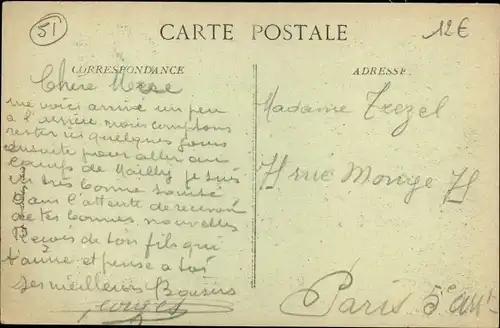 51
12€
CARTE POSTALE
CORRESPONDANCE
ADRESSE
Chère Mère
me voici arrivé un peu
a l'arrière nous comptons
rester ici quelques jours
ensuite pour aller au
camps de Mailly je suis
en très bonne santé
Dans l'attente de recevoir
de tes bonnes nouvelles
Reçois de ton fils qui
t'aime et pense a toi
ses meilleurs Baisers
Georges
Madame Trezel
rue Monge
Paris 5e arrt